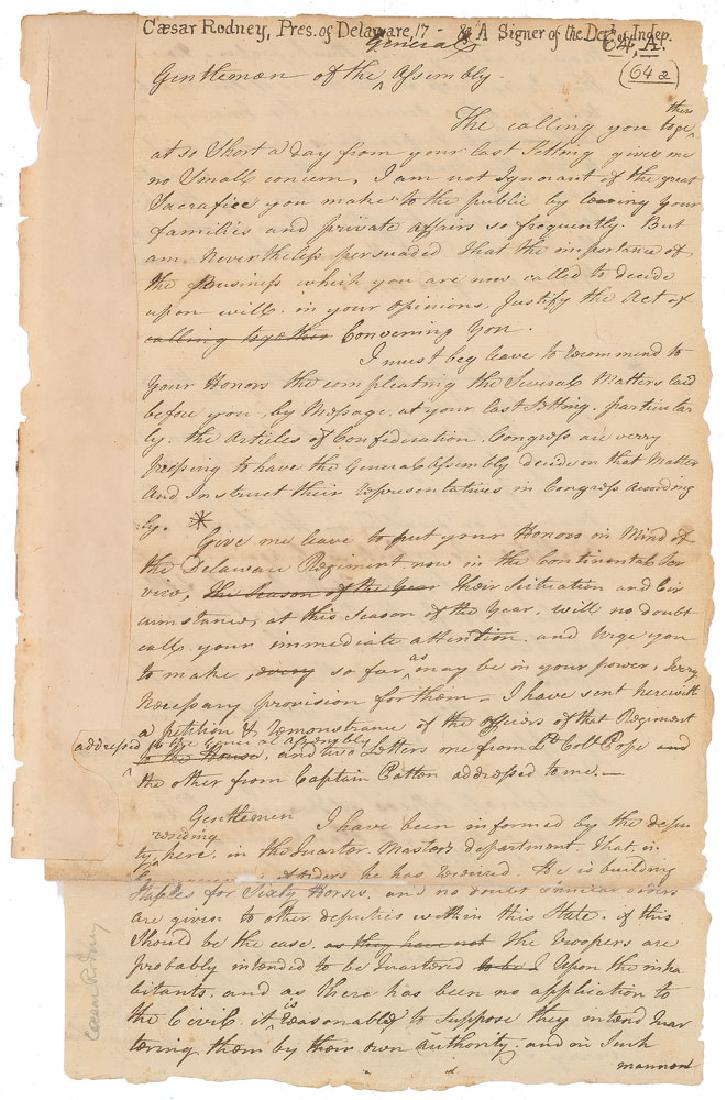 Cæsar Rodney, Pres. of Delaware, 17 - & A Signer of the Decl. of Indep.
64, A.
(64 2)
Gentlemen of the General Assembly.
The calling you together
at so Short a day from your last Sitting gives me
no Small concern, I am not Ignorant of the great
Sacrafice you make to the public by leaving your
families and private affairs so frequently. But
am Nevertheless persuaded that the importance of
the Business which you are now called to decide
upon will, in your Opinions, Justify the Act of
calling together Convening You.
I must beg leave to recommend to
Your Honors the compleating the Several Matters laid
before you, by Message, at your last Sitting, particular
ly, the Articles of Confederation. Congress are verry
pressing to have the General Assembly decide on that Matter
And Instruct their representatives in Congress according
ly. *
Give me leave to put your Honors in Mind of
the Delaware Regiment now in the Continental Ser
vice, the Season of the Year Their Situation and Cir
cumstances, at this Season of the Year, will no doubt
call your immediate attention, and Urge you
to make, every so far as may be in your power, Every
Necessary provision for them - I have sent herewith
a petition & remonstrance of the officers of that Regiment
addressed to the General assembly
to the House, and two Letters one from Lt. Coll. Pope and
the other from Captain Patton addressed to me. —
Gentlemen I have been informed by the depu
ty residing here, in the Quarter-Master's department, That, in
orders he has received. He is building
Stables for Sixty Horses, and no doubt similar orders
are given to other deputies within this State, if this
Should be the case, as they have not the Troopers are
probably intended to be Quartered to be Upon the inha
bitants, and as there has been no application to
the Civil, it is reasonable to Suppose they intend Quar
tering them by their own authority, and in Such
manner
Cæsar Rodney